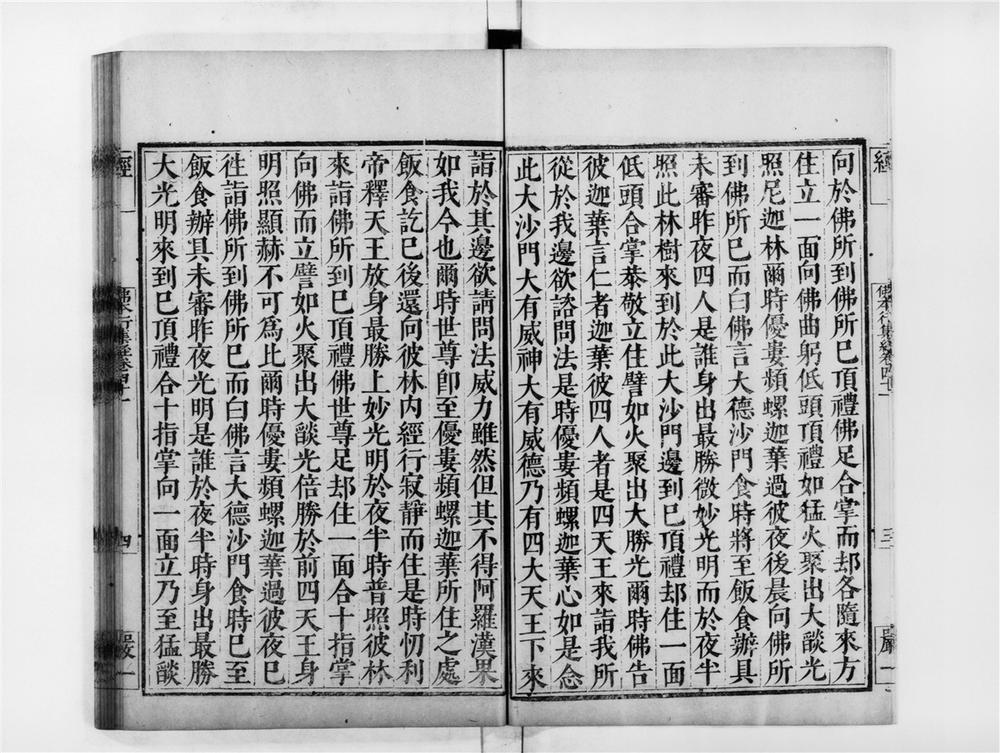 向於佛所到佛所巳頂禮佛足合掌而却各隨來方
住立一面向佛曲躬低頭頂禮如猛火聚出大燄光
照尼迦林爾時優婁頻螺迦葉過彼夜後晨向佛所
到佛所巳而白佛言大德沙門食時將至飯食辦具
未審昨夜四人是誰身出最勝微妙光明而於夜半
照此林樹來到於此大沙門邊到巳頂禮却住一面
低頭合掌恭敬立住譬如火聚出大勝光爾時佛告
彼迦葉言仁者迦葉彼四人者是四天王來詣我所
從於我邊欲諮問法是時優婁頻螺迦葉心如是念
此大沙門大有威神大有威德乃有四大天王下來
經
佛本行集經卷四十一
三
詣於其邊欲請問法威力雖然但其不得阿羅漢果
如我今也爾時世尊卽至優婁頻螺迦葉所住之處
飯食訖巳後還向彼林內經行寂靜而住是時忉利
帝釋天王放身最勝上妙光明於夜半時普照彼林
來詣佛所到巳頂禮佛世尊足却住一面合十指掌
向佛而立譬如火聚出大燄光倍勝於前四天王身
明照顯赫不可爲比爾時優婁頻螺迦葉過彼夜巳
徃詣佛所到佛所巳而白佛言大德沙門食時巳至
飯食辦具未審昨夜光明是誰於夜半時身出最勝
大光明來到巳頂禮合十指掌向一面立乃至猛燄
經
佛本行集經卷四十一
四